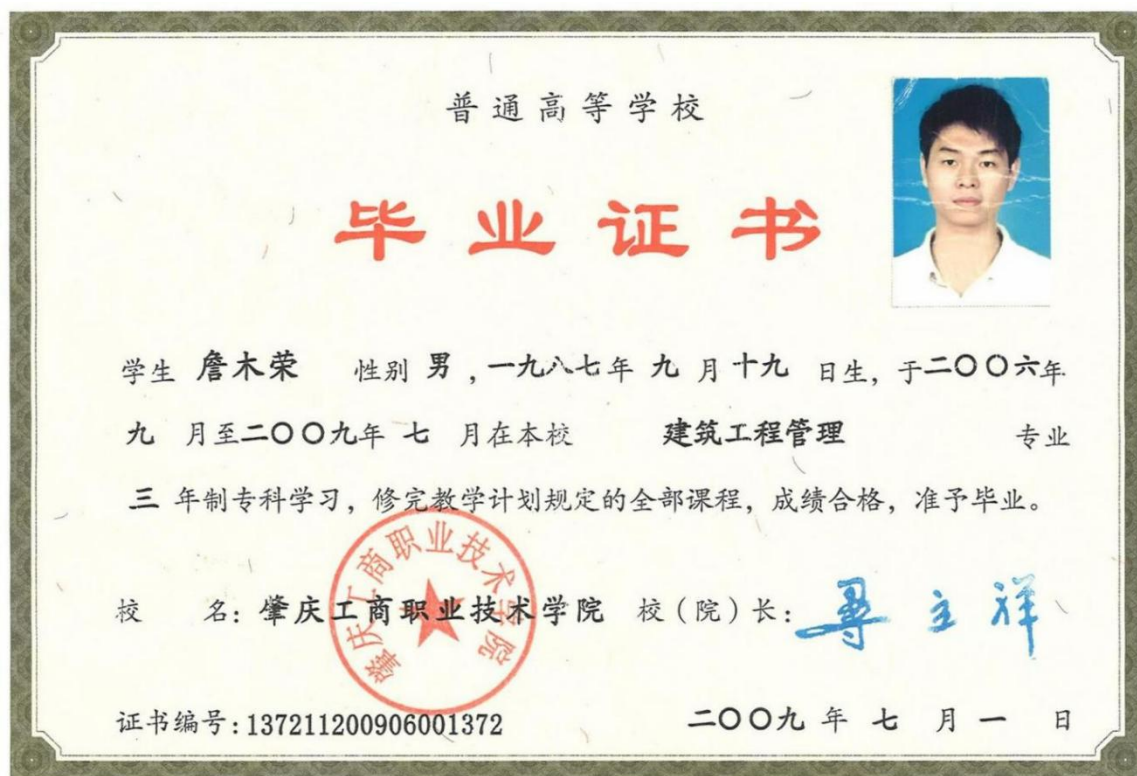 普通高等学校
毕业证书
学生 詹木荣 性别 男 , 一九八七年 九 月 十九 日生, 于二〇〇六年
九 月至二〇〇九年 七 月在本校 建筑工程管理 专业
三 年制专科学习, 修完教学计划规定的全部课程, 成绩合格, 准予毕业。
肇庆工商职业技术学院
校 名: 肇庆工商职业技术学院 校(院)长: 寻立祥
证书编号: 137211200906001372 二〇〇九 年 七 月 一 日